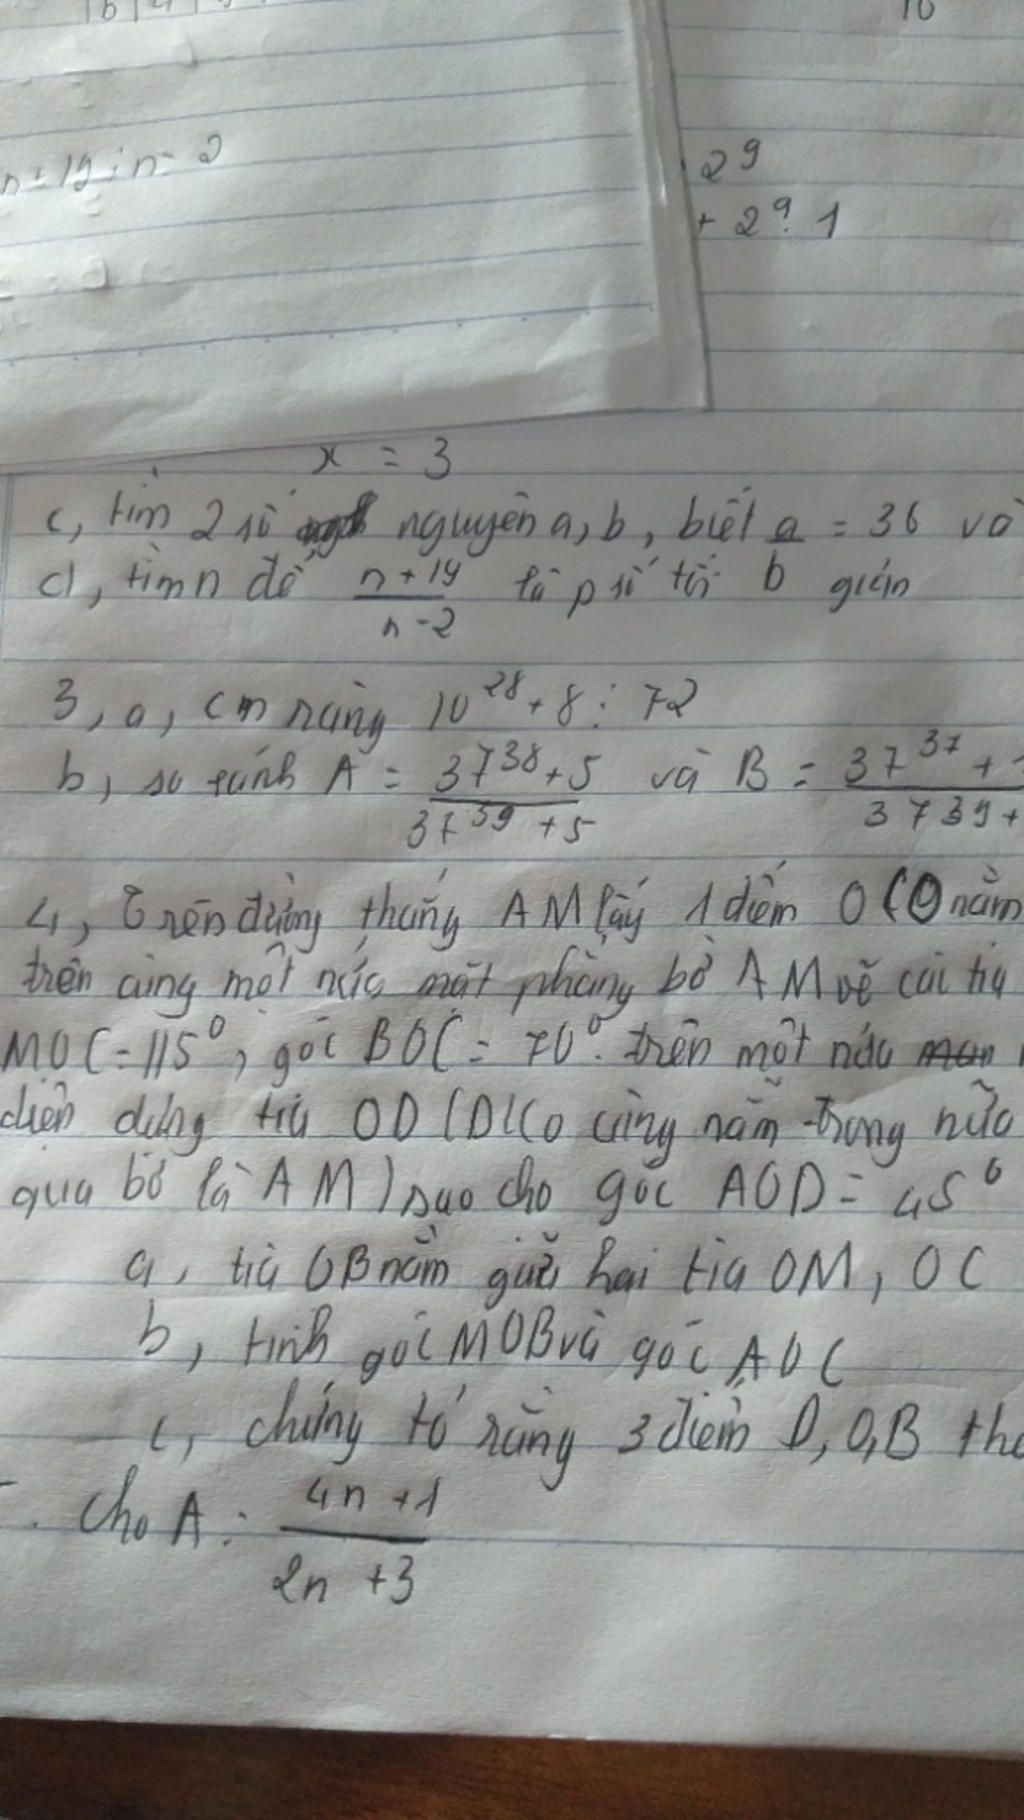 n + 19 ⋮ n - 2
2⁹
+ 2⁹. 1
x = 3
c, tìm 2 số nguyên a, b, biết a/b = 36 và
d, tìm n để (n + 19)/(n - 2) là p số tối giản
3, a, cm rằng 10²⁸ + 8 ⋮ 72
b, so sánh A = (37³⁸ + 5)/(37³⁹ + 5) và B = (37³⁷ +)/(37³⁹ +)
4, Trên đường thẳng AM lấy 1 điểm O (O nằm
trên cùng một nửa mặt phẳng bờ AM vẽ cái tia
MOC = 115⁰, góc BOC = 70⁰. trên một nửa
diện dựng tia OD (D ko cùng nằm trong nửa
qua bờ là AM) sao cho góc AOD = 45⁰
a, tia OB nằm giữa hai tia OM, OC
b, tính góc MOB và góc AOC
c, chứng tỏ rằng 3 điểm D, O, B
Cho A = (4n + 1)/(2n + 3)